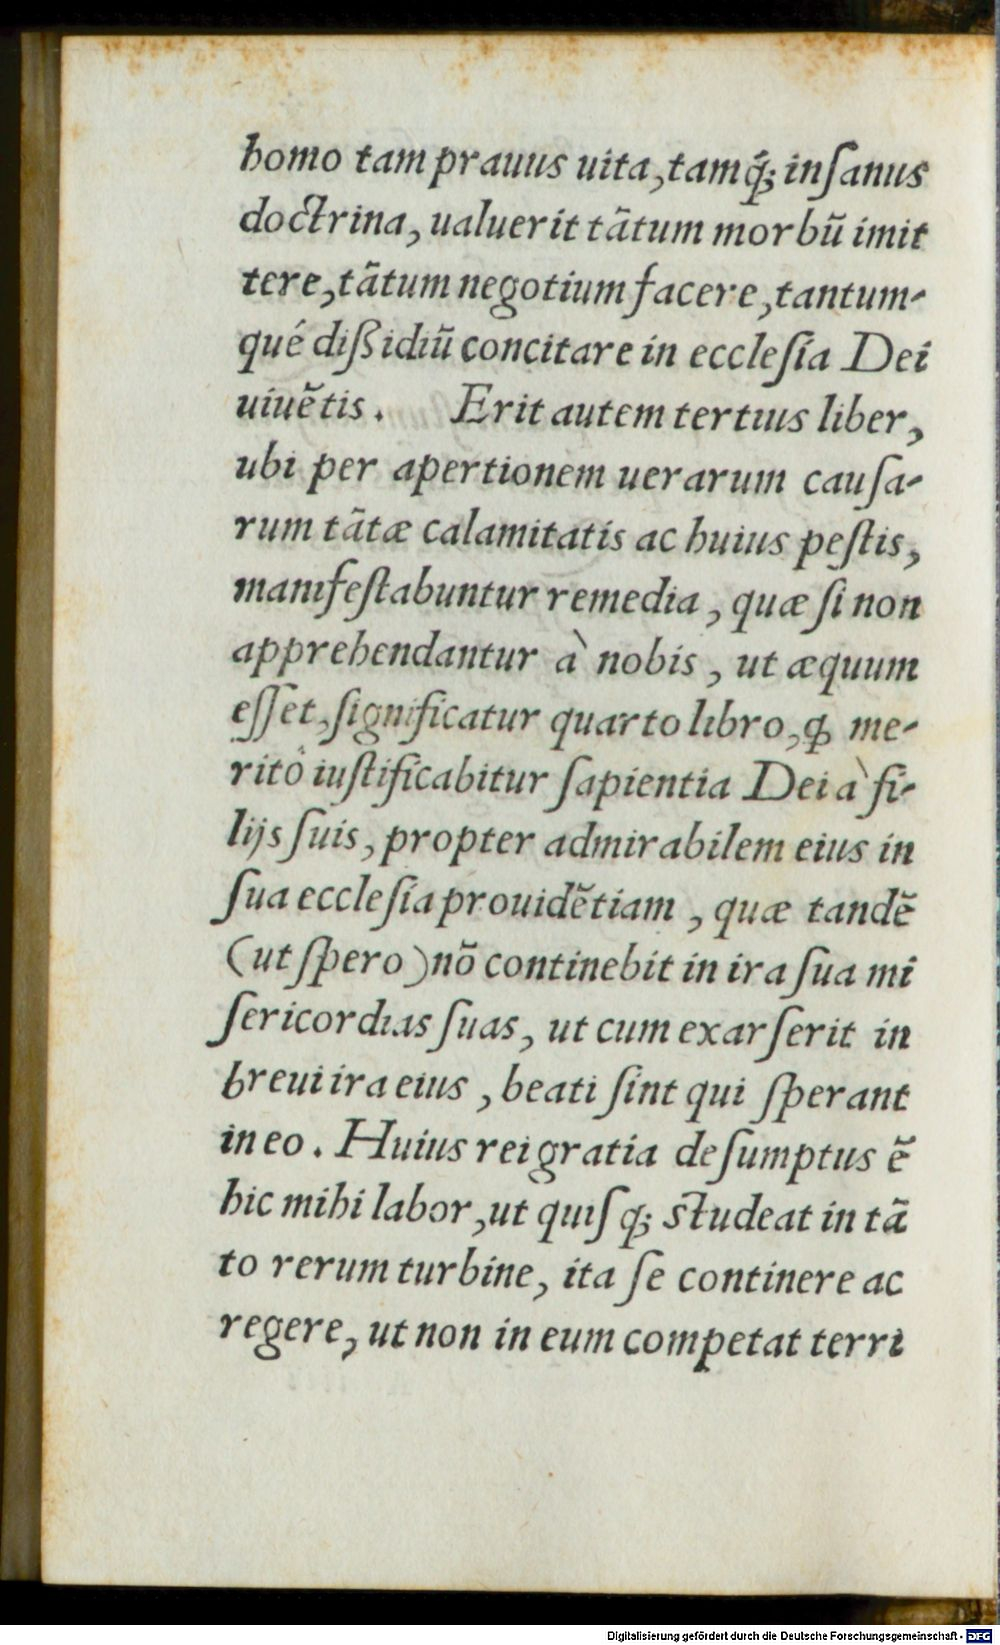 homo tam prauus uita, tamq́; inſanus
doctrina, ualuerit tãtum morbũ imit
tere, tãtum negotium facere, tantum-
qué dißidiũ concitare in eccleſia Dei
uiuẽtis. Erit autem tertius liber,
ubi per apertionem uerarum cauſa-
rum tãtæ calamitatis ac huius peſtis,
manifeſtabuntur remedia, quæ ſi non
apprehendantur à nobis, ut æquum
eſſet, ſignificatur quarto libro, ꝙ me-
ritò iuſtificabitur ſapientia Dei à fi-
lijs ſuis, propter admirabilem eius in
ſua eccleſia prouidẽtiam, quæ tandẽ
(ut ſpero) nõ continebit in ira ſua mi
ſericordias ſuas, ut cum exarſerit in
breui ira eius, beati ſint qui ſperant
in eo. Huius rei gratia deſumptus ẽ
hic mihi labor, ut quiſq; ſtudeat in tã
to rerum turbine, ita ſe continere ac
regere, ut non in eum competat terri
Digitalisierung gefördert durch die Deutsche Forschungsgemeinschaft - DFG